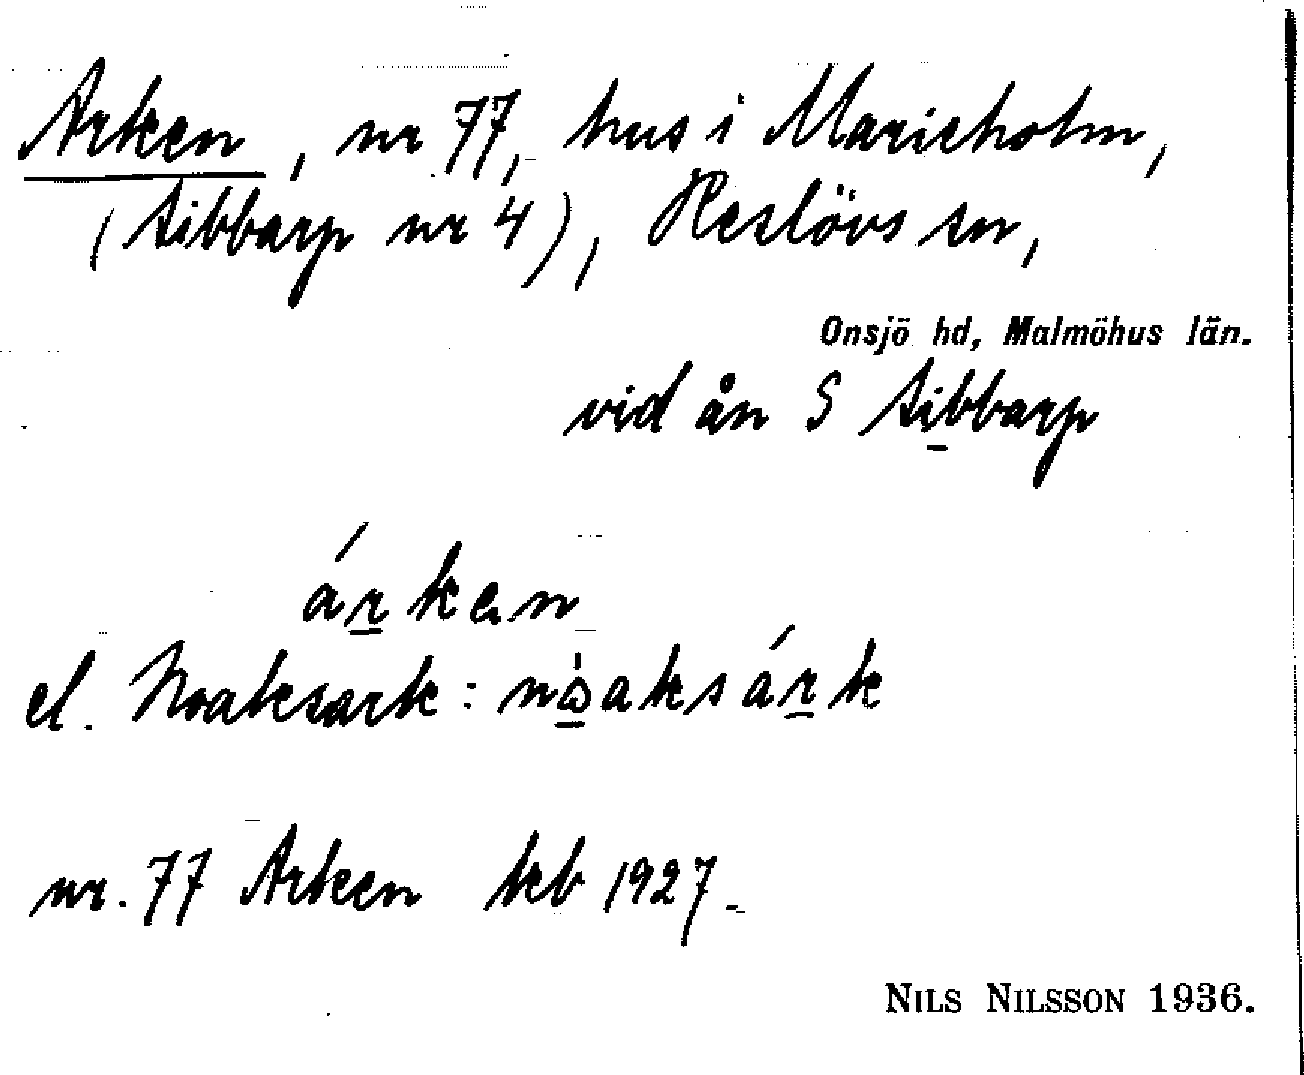 Arken, nr 77, hus i Marieholm,
(Sibbarp nr 4), Reslövs sn,
Onsjö hd, Malmöhus län.
vid ån S Sibbarp
árkan
el. Noaksark: nòaksárk
nr. 77 Arken kb 1927.
NILS NILSSON 1936.